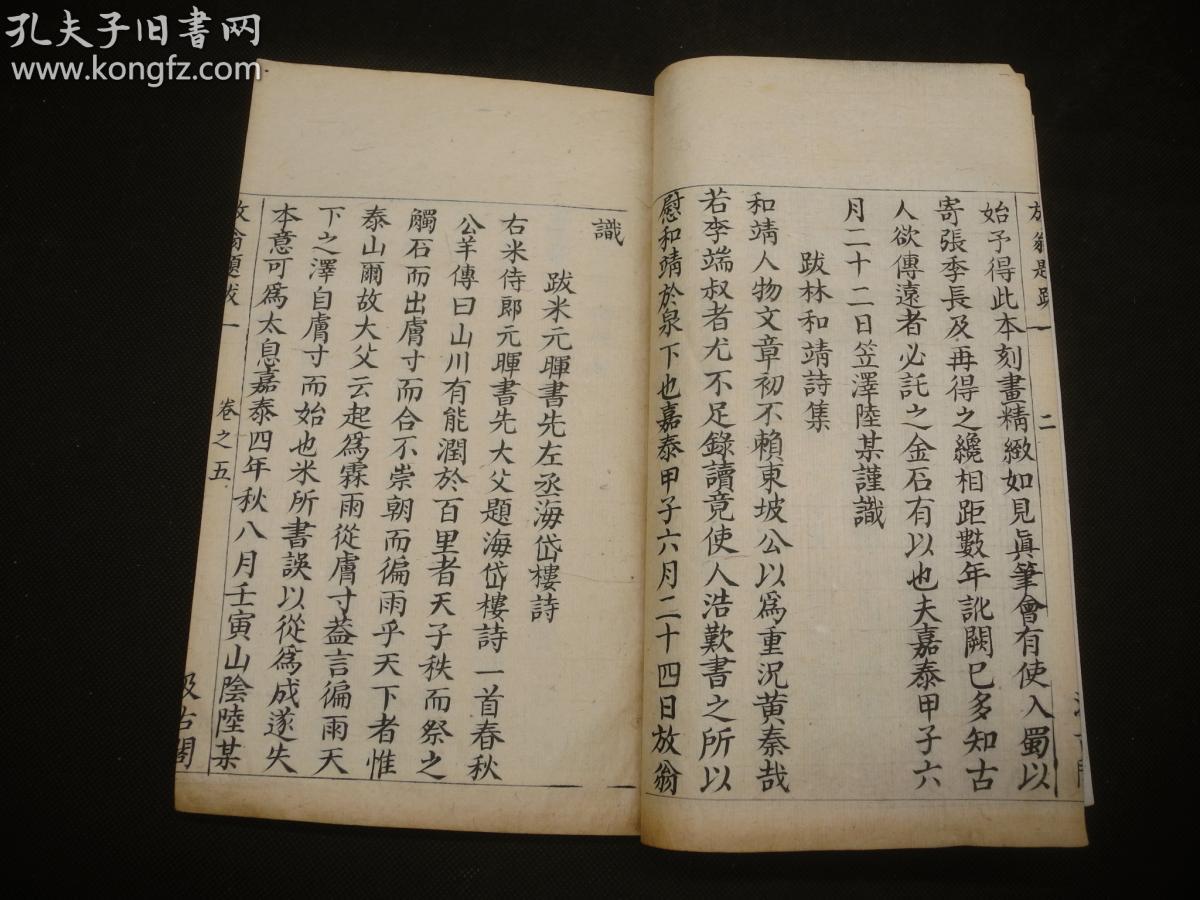 孔夫子旧书网
www.kongfz.com
始予得此本刻畫精緻如見眞筆會有使入蜀以
寄張季長及再得之纔相距數年訛闕已多知古
人欲傳遠者必託之金石有以也夫嘉泰甲子六
月二十二日笠澤陸某謹識
跋林和靖詩集
和靖人物文章初不賴東坡公以爲重況黄秦哉
若李端叔者尤不足錄讀竟使人浩歎書之所以
慰和靖於泉下也嘉泰甲子六月二十四日放翁
識
跋米元暉書先左丞海岱樓詩
右米侍郎元暉書先大父題海岱樓詩一首春秋
公羊傳曰山川有能潤於百里者天子秩而祭之
觸石而出膚寸而合不崇朝而徧雨乎天下者惟
泰山爾故大父云起爲霖雨從膚寸葢言徧雨天
下之澤自膚寸而始也米所書誤以從爲成遂失
本意可爲太息嘉泰四年秋八月壬寅山陰陸某
放翁題跋一
卷之五
汲古閣